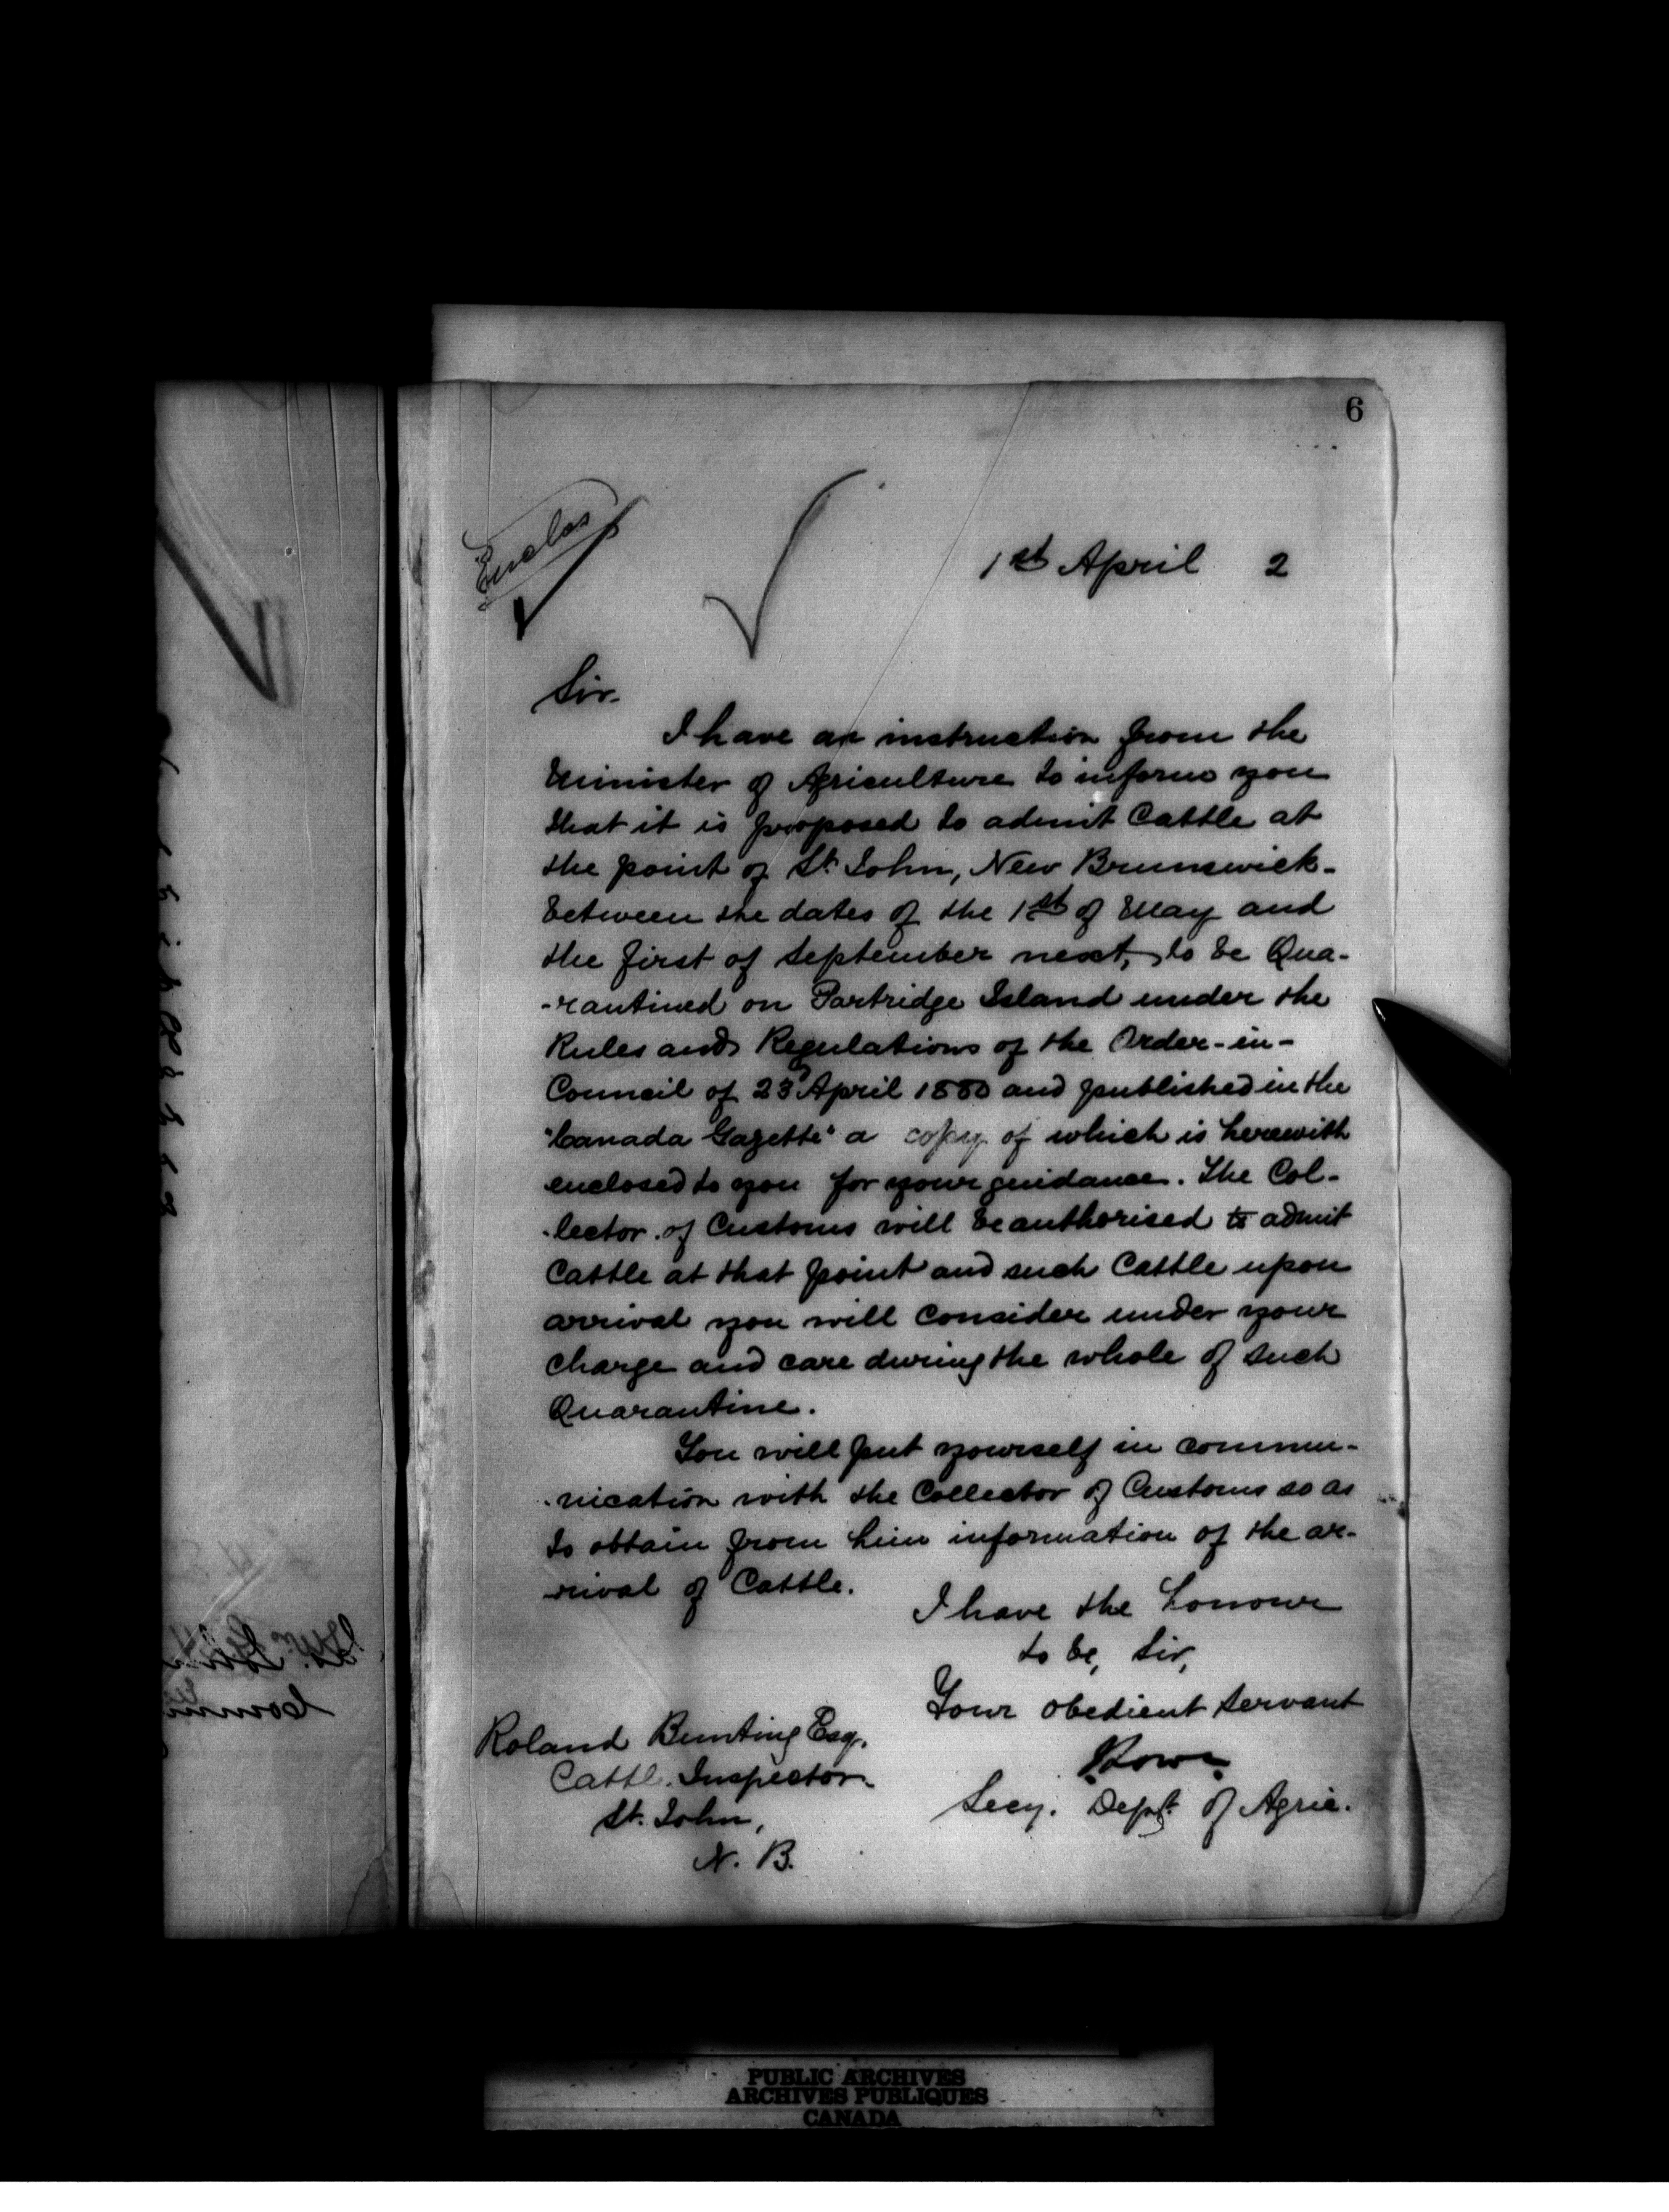 6
Enclos
1st April 2
Sir.
I have an instruction from the
Minister of Agriculture to inform you
that it is proposed to admit Cattle at
the point of St. John, New Brunswick-
between the dates of the 1st of May and
the first of September next, to be Qua-
-rantined on Partridge Island under the
Rules and Regulations of the Order-in-
Council of 23d April 1880 and published in the
"Canada Gazette" a copy of which is herewith
enclosed to you for your guidance. The Col-
-lector of Customs will be authorised to admit
Cattle at that point and such Cattle upon
arrival you will consider under your
charge and care during the whole of such
Quarantine.
You will put yourself in commu-
-nication with the Collector of Customs so as
to obtain from him information of the ar-
-rival of Cattle.
I have the honour
to be, Sir,
Your obedient Servant
Secy. Dept. of Agric.
Roland Bunting Esq.
Cattle Inspector
St. John,
N. B.
PUBLIC ARCHIVES
ARCHIVES PUBLIQUES
CANADA